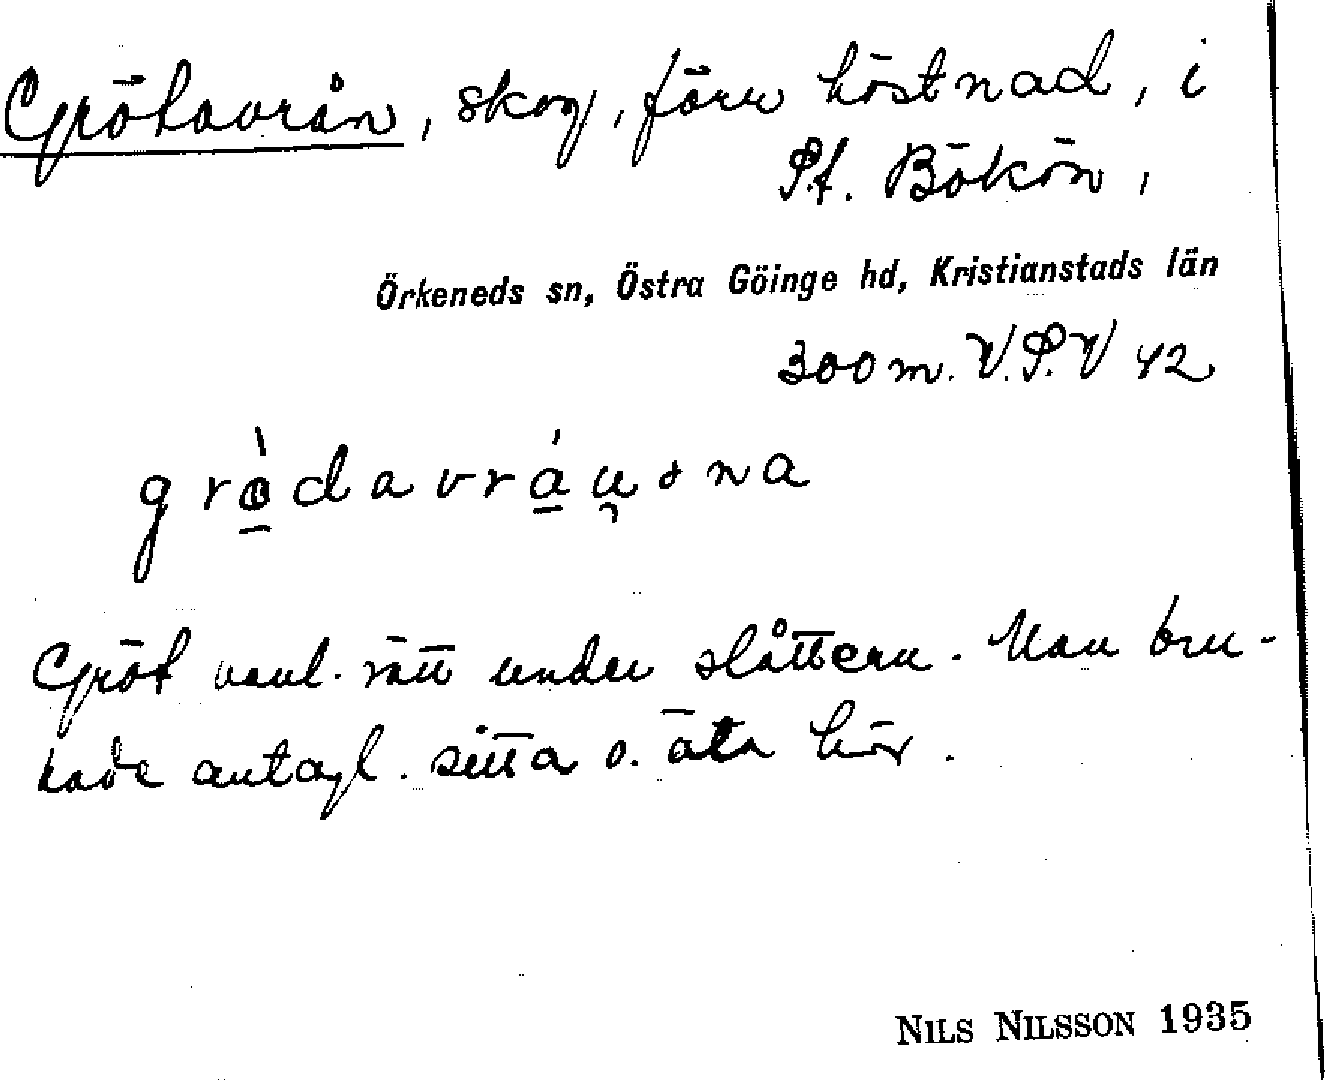 Grötavrån, skog, förr höstnad, i
Pt. Bökön,
Örkeneds sn, Östra Göinge hd, Kristianstads län
300 m. V.P.V 42
grò̠davrá̠u̯ena
Gröt vanl. rätt under slåttern. Man bru-
kade antagl. sitta o. äta här.
NILS NILSSON 1935